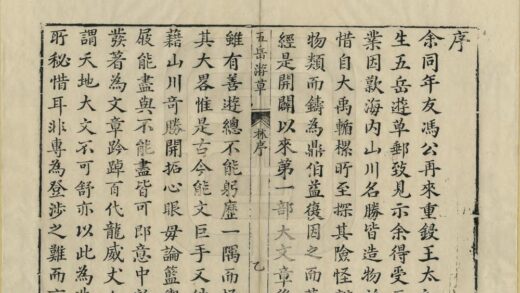 序
余同年友馮公再來重鋟王太
生五岳遊草郵致見示余得受
業因歎海內山川名勝皆造物
惜自大禹輴樏所至探其險怪
物類而鑄為鼎伯益復因之而
經是開闢以來第一部大文章
五岳游草
林序
乙
雖有善遊總不能躬歷一隅而
其大畧惟是古今能文巨手又
藉山川奇勝開拓心眼毋論籃
屐能盡與不能盡皆可即意中
發著為文章跨踔百代龍威丈
謂天地大文不可舒亦以此為
所秘惜耳非專為登涉之難而